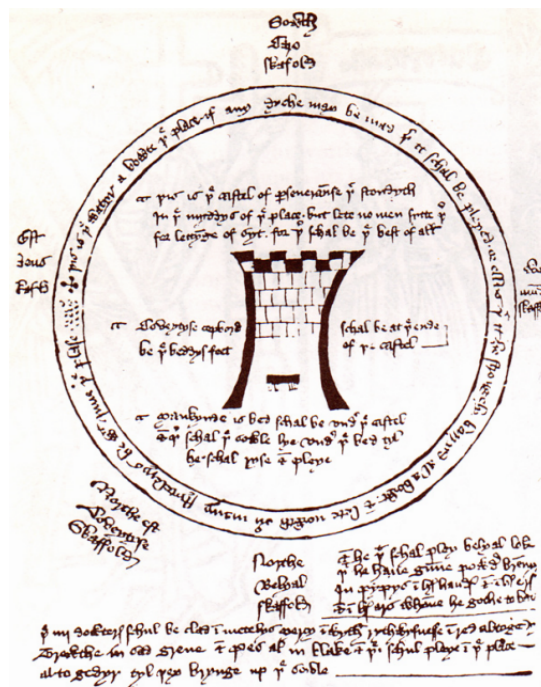 Sowth
Caro
skafold
þis is þe watyr a bowte þe place if any dyche may be mad þer it schal be pleyed or ellys þat it be strongely barryd al a bowte & lete nowth ovyr many stytelerys be wyth Inne þe plase
þis is þe castel of perseveraunse þat stondyth
In þe myddys of þe place but lete no men sytte þer
for lettynge of syt for þer schal be þe best of all
Est
deus
skafold
Coveytyse copbord schal be at þe ende
be þe beddys feet of þe castel
Mankynde is bed schal be undyr þe castel
& þer schal þe sowle lye undyr þe bed tyl
he schal ryse & pleye
Northe est
Coveytyse
Skaffold
Northe
Belyal
skaffold
& he þat schal pley belyal loke
þat he have gunne powdyr brenn
In pypys in hys handis & in hys eris
& in hys ars whanne he gothe to bat
þe iiij dowteris schul be clad in mentelys mercy in wyth rythwysnesse in red altogedyr
Trewthe in sad grene & pes al in blake & þei schul pleye in þe place
al to gedyr tyl þey brynge up þe sowle